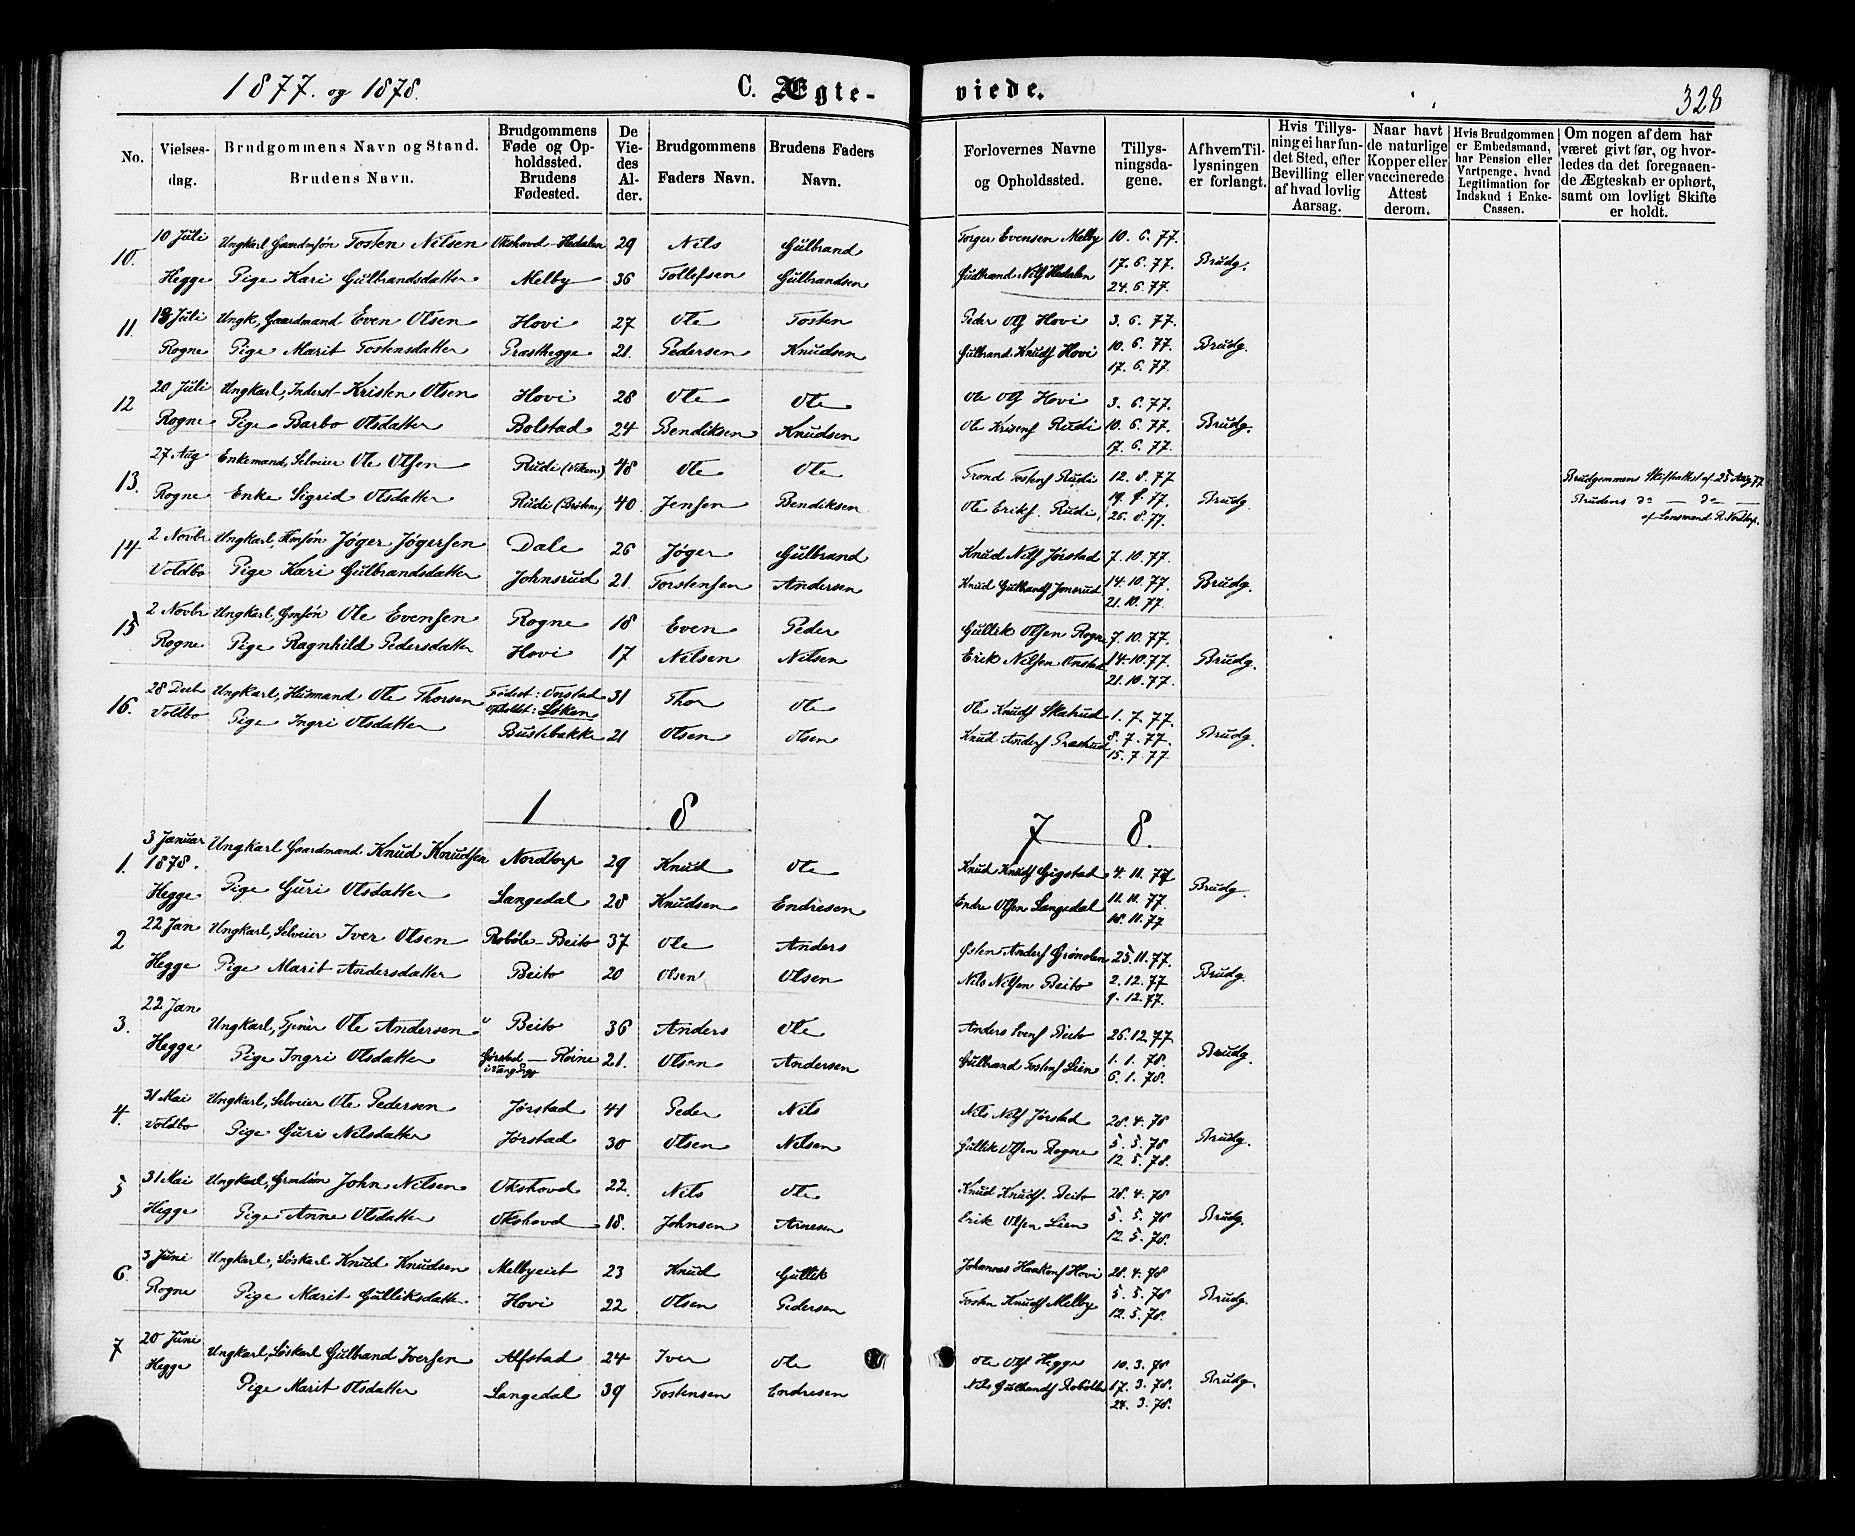 1877. og 1878.
C. Ægteviede.
328
No.
Vielsesdag.
Brudgommens Navn og Stand. Brudens Navn.
Brudgommens Føde og Opholdssted. Brudens Fødested.
De Viedes Alder.
Brudgommens Faders Navn.
Brudens Faders Navn.
Forlovernes Navne og Opholdssted.
Tillysningsdagene.
Af hvem Tillysningen er forlangt.
Hvis Tillysning ei har fundet Sted, efter Bevilling eller af hvad lovlig Aarsag.
Naar havt de naturlige Kopper eller vaccinerede Attest derom.
Hvis Brudgommen er Embedsmand, har Pension eller Vartpenge, hvad Legitimation for Indskud i Enke-Cassen.
Om nogen af dem har været givt før, og hvorledes da det foregaaende Ægteskab er ophørt, samt om lovligt Skifte er holdt.
10 Juli Ungkarl Gaardmsøn Tosten Nilsen Okshovd-Hedalen 29 Nils Gulbrand Torger Evensen Melby 10. 6. 77.
10. Hegge Pige Kari Gulbrandsdatter Melby 36 Tollefsen Gulbrandsen Gudbrand Nilss Hedalen 17. 6. 77. Brudg.
24. 6. 77.
11. 13 Juli Ungk, Gaardmand Even Olsen Hovi 27 Ole Tosten Peder Ols Hovi 3. 6. 77.
Rogne Pige Marit Tostensdatter Præsthegge 21. Pedersen Knudsen Gulbrand Knuds Hovi 10. 6. 77. Brudg.
17. 6. 77.
12 20 Juli Ungkarl, Inderst Kristen Olsen Hovi 28 Ole Ole Ole Ols Hovi 3. 6. 77.
Rogne Pige Barbo Olsdatter Bolstad 24 Bendiksen Knudsen Ole Rudi 10. 6. 77. Brudg.
17. 6. 77.
13. 27 Aug Enkemand, Selveier Ole Olsen Rudi 48 Ole Ole Trond Tostens Rudi 12. 8. 77 Brudgommens Skifteattest af 25 Aug 77
Rogne Enke Sigrid Olsdatter Rudi 40. Jensen Bendiksen Ole Eriks Rudi 19. 8. 77. Brudg. Brudens do — do
26. 8. 77. af Lensmand R. Nordtorp.
14 2 Novbr Ungkarl, Jøger Jøgersen Dale 26 Jøger Gulbrand Knud Nils Jørstad 7. 10. 77.
Voldbo Pige Kari Gulbrandsdatter Johnsrud 21 Torstensen Andersen Knud Gulbrands Jonsrud 14. 10. 77. Brudg.
21. 10. 77.
15 2 Novbr Ungkarl, Gmsøn Ole Evensen Rogne 18 Even Peder Gullik Olsen Rogne 7. 10. 77.
Rogne Pige Ragnhild Pedersdatter Hovi 17 Nilsen Nilsen Erik Nilsen Onstad 14. 10. 77. Brudg.
21. 10. 77.
16. 28 Decb Ungkarl, Husmand Ole Thorsen Fødest: Onstad Opholdst: Løken 31 Thor Ole Ole Knuds Skatrud 1. 7. 77.
Voldbo Pige Ingri Olsdatter Bustebakke 21 Olsen Olsen Knud Anders Præstrud 8. 7. 77. Brudg.
15. 7 77
1 8 7 8.
1. 3 Januar 1878. Ungkarl Gaardmand Knud Knudsen Nordtorp 29 Knud Ole Knud Knuds Gigstad 4. 11. 77
Hegge Pige Guri Olsdatter Langedal 28 Knudsen Endresen Endre Olsen Langedal 11. 11. 77. Brudg.
18. 11. 77
2 22 Jan Ungkarl, Selveier Iver Olsen Robøle-Beito 37 Ole Anders Østen Anders Grønolen 25. 11. 77.
Hegge Pige Marit Andersdatter Beito 20 Olsen Olsen Nils Nilsen Beito 2. 12. 77 Brudg.
9. 12. 77.
3. 22 Jan Ungkarl, Tjener Ole Andersen Beito 36 Anders Ole Anders Ivers Beito 26. 12. 77
Hegge Pige Ingri Olsdatter 21. Olsen Andersen Gulbrand Tostens Lien 1. 1. 78. Brudg.
6. 1. 78.
4. 31 Mai Ungkarl, Selveier Ole Pedersen Jørstad 41 Peder Nils Nils Nils Jørstad 28. 4. 78
Voldbo Pige Guri Nilsdatter Jørstad 30 Olsen Nilsen Gullik Olsen Rogne 5. 5. 78 Brudg.
12. 5. 78.
5 31 Mai Ungkarl, Grmdsøn John Nilsen Okshovd 22. Nils Ole Knud Knuds. Beito 28. 4. 78
Hegge Pige Anne Olsdatter Okshovd 18. Johnsen Arnesen Erik Olsen Lien 5. 5. 78 Brudg.
12. 5. 78.
6. 3 Juni Ungkarl, Løskarl Knud Knudsen Melbyeiet 23 Knud Gullik Johannes Haakons Hovi 28. 4. 78
Rogne Pige Marit Gulliksdatter Hovi 22 Olsen Pedersen Tosten Knuds Melby 5. 5. 78 Brudg.
12. 5. 78.
7 20 Juni Ungkarl, Løskarl Gulbrand Iversen Alfstad 24 Iver Ole Ole Ols Hegge 10. 3. 78
Hegge Pige Marit Olsdatter Langedal 39 Tostensen Endresen Nils Gulbrands Robølle 17. 3. 78. Brudg.
24. 3. 78.